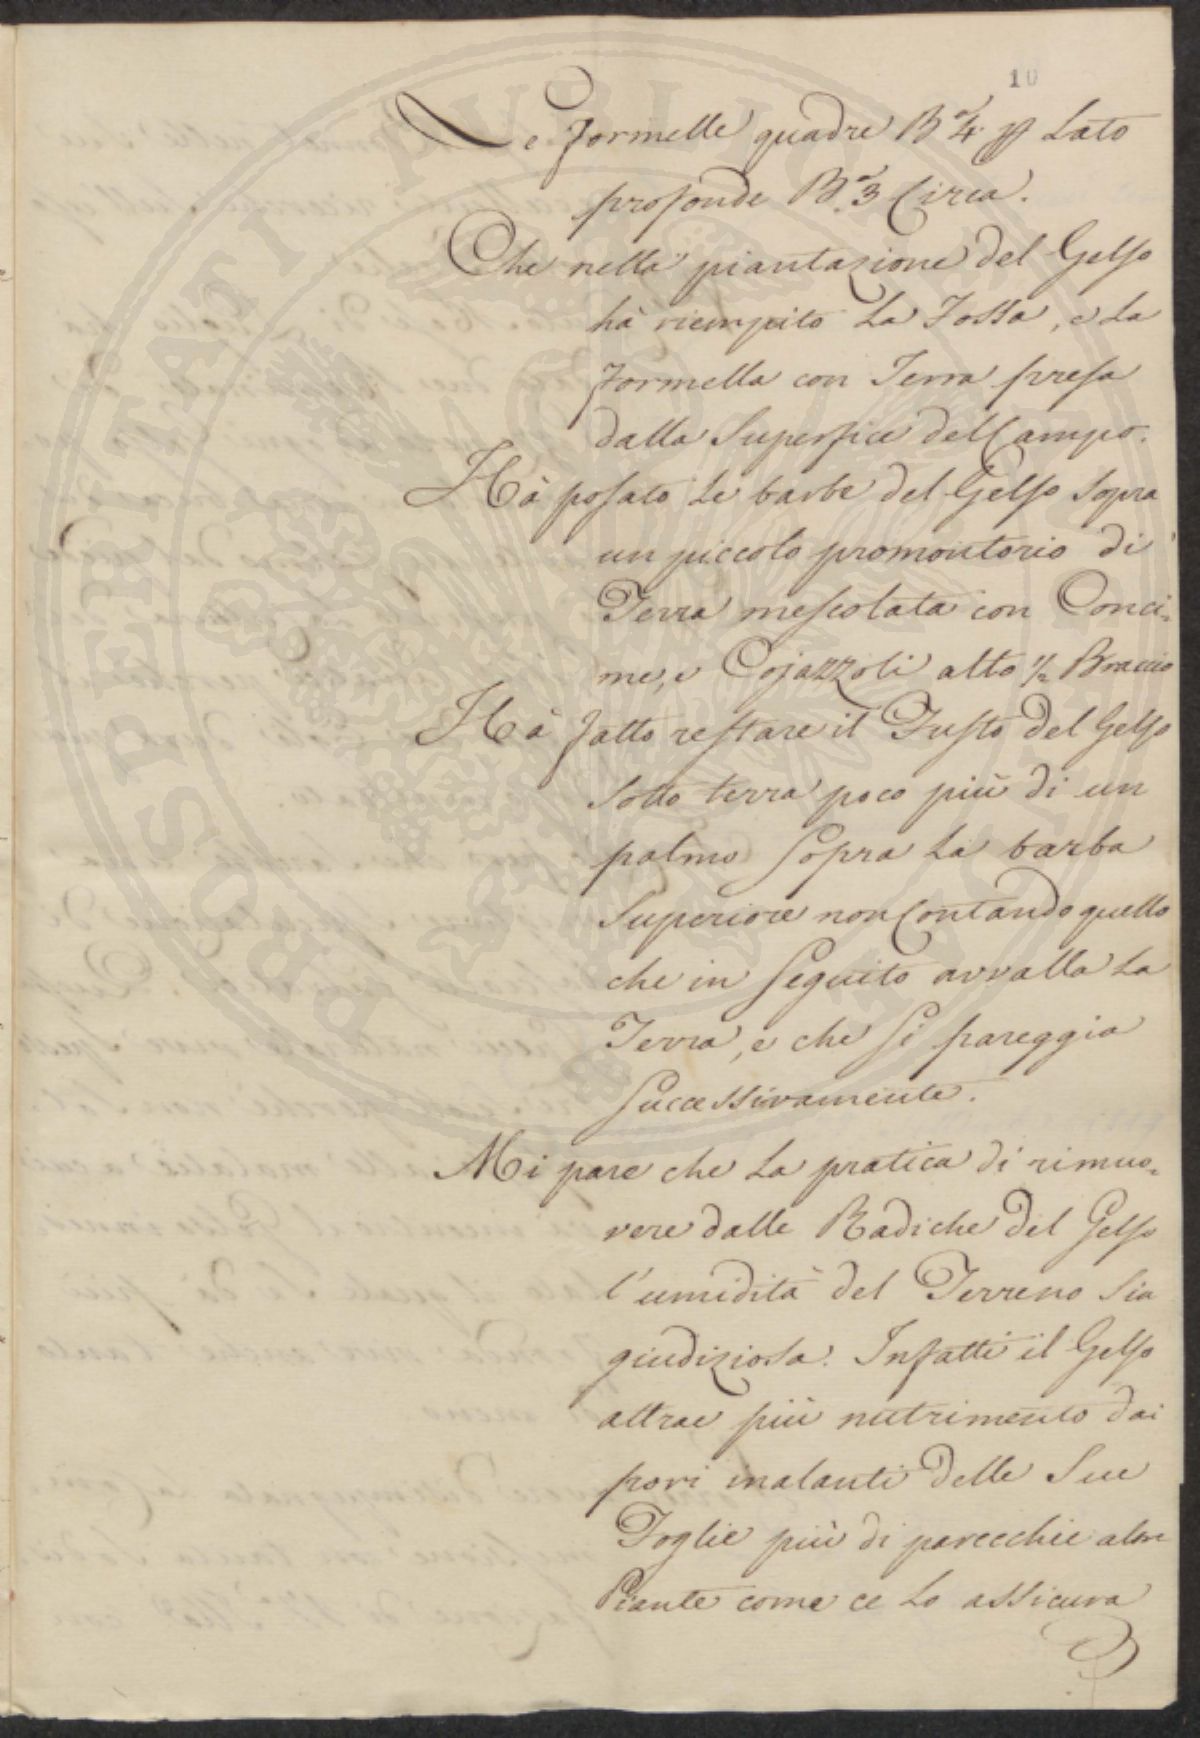 10
Le formelle quadre B.a 4 p Lato
profonde B.a 3 Circa.
Che nella piantazione del Gelso
hà riempito La Fossa, e La
formella con Terra presa
dalla Superfice del Campo.
Hà posato Le barbe del Gelso Sopra
un piccolo promontorio di
Terra mescolata con Conci-
me, e Cojazzoli alto 1/2 Braccio
Hà fatto restare il Fusto del Gelso
Sotto terra poco più di un
palmo Sopra La barba
Superiore non Contando quello
che in Seguito avvalla La
Terra, e che Si pareggia
Successivamente.
Mi pare che La pratica di rimuo-
vere dalle Radiche del Gelso
l'umidità del Terreno Sia
giudiziosa. Infatti il Gelso
attrae più nutrimento dai
pori inalanti delle Sue
Foglie più di parecchie altre
Piante come ce Lo assicura
PROSPERITATI PUBLICAE AUGENDAE